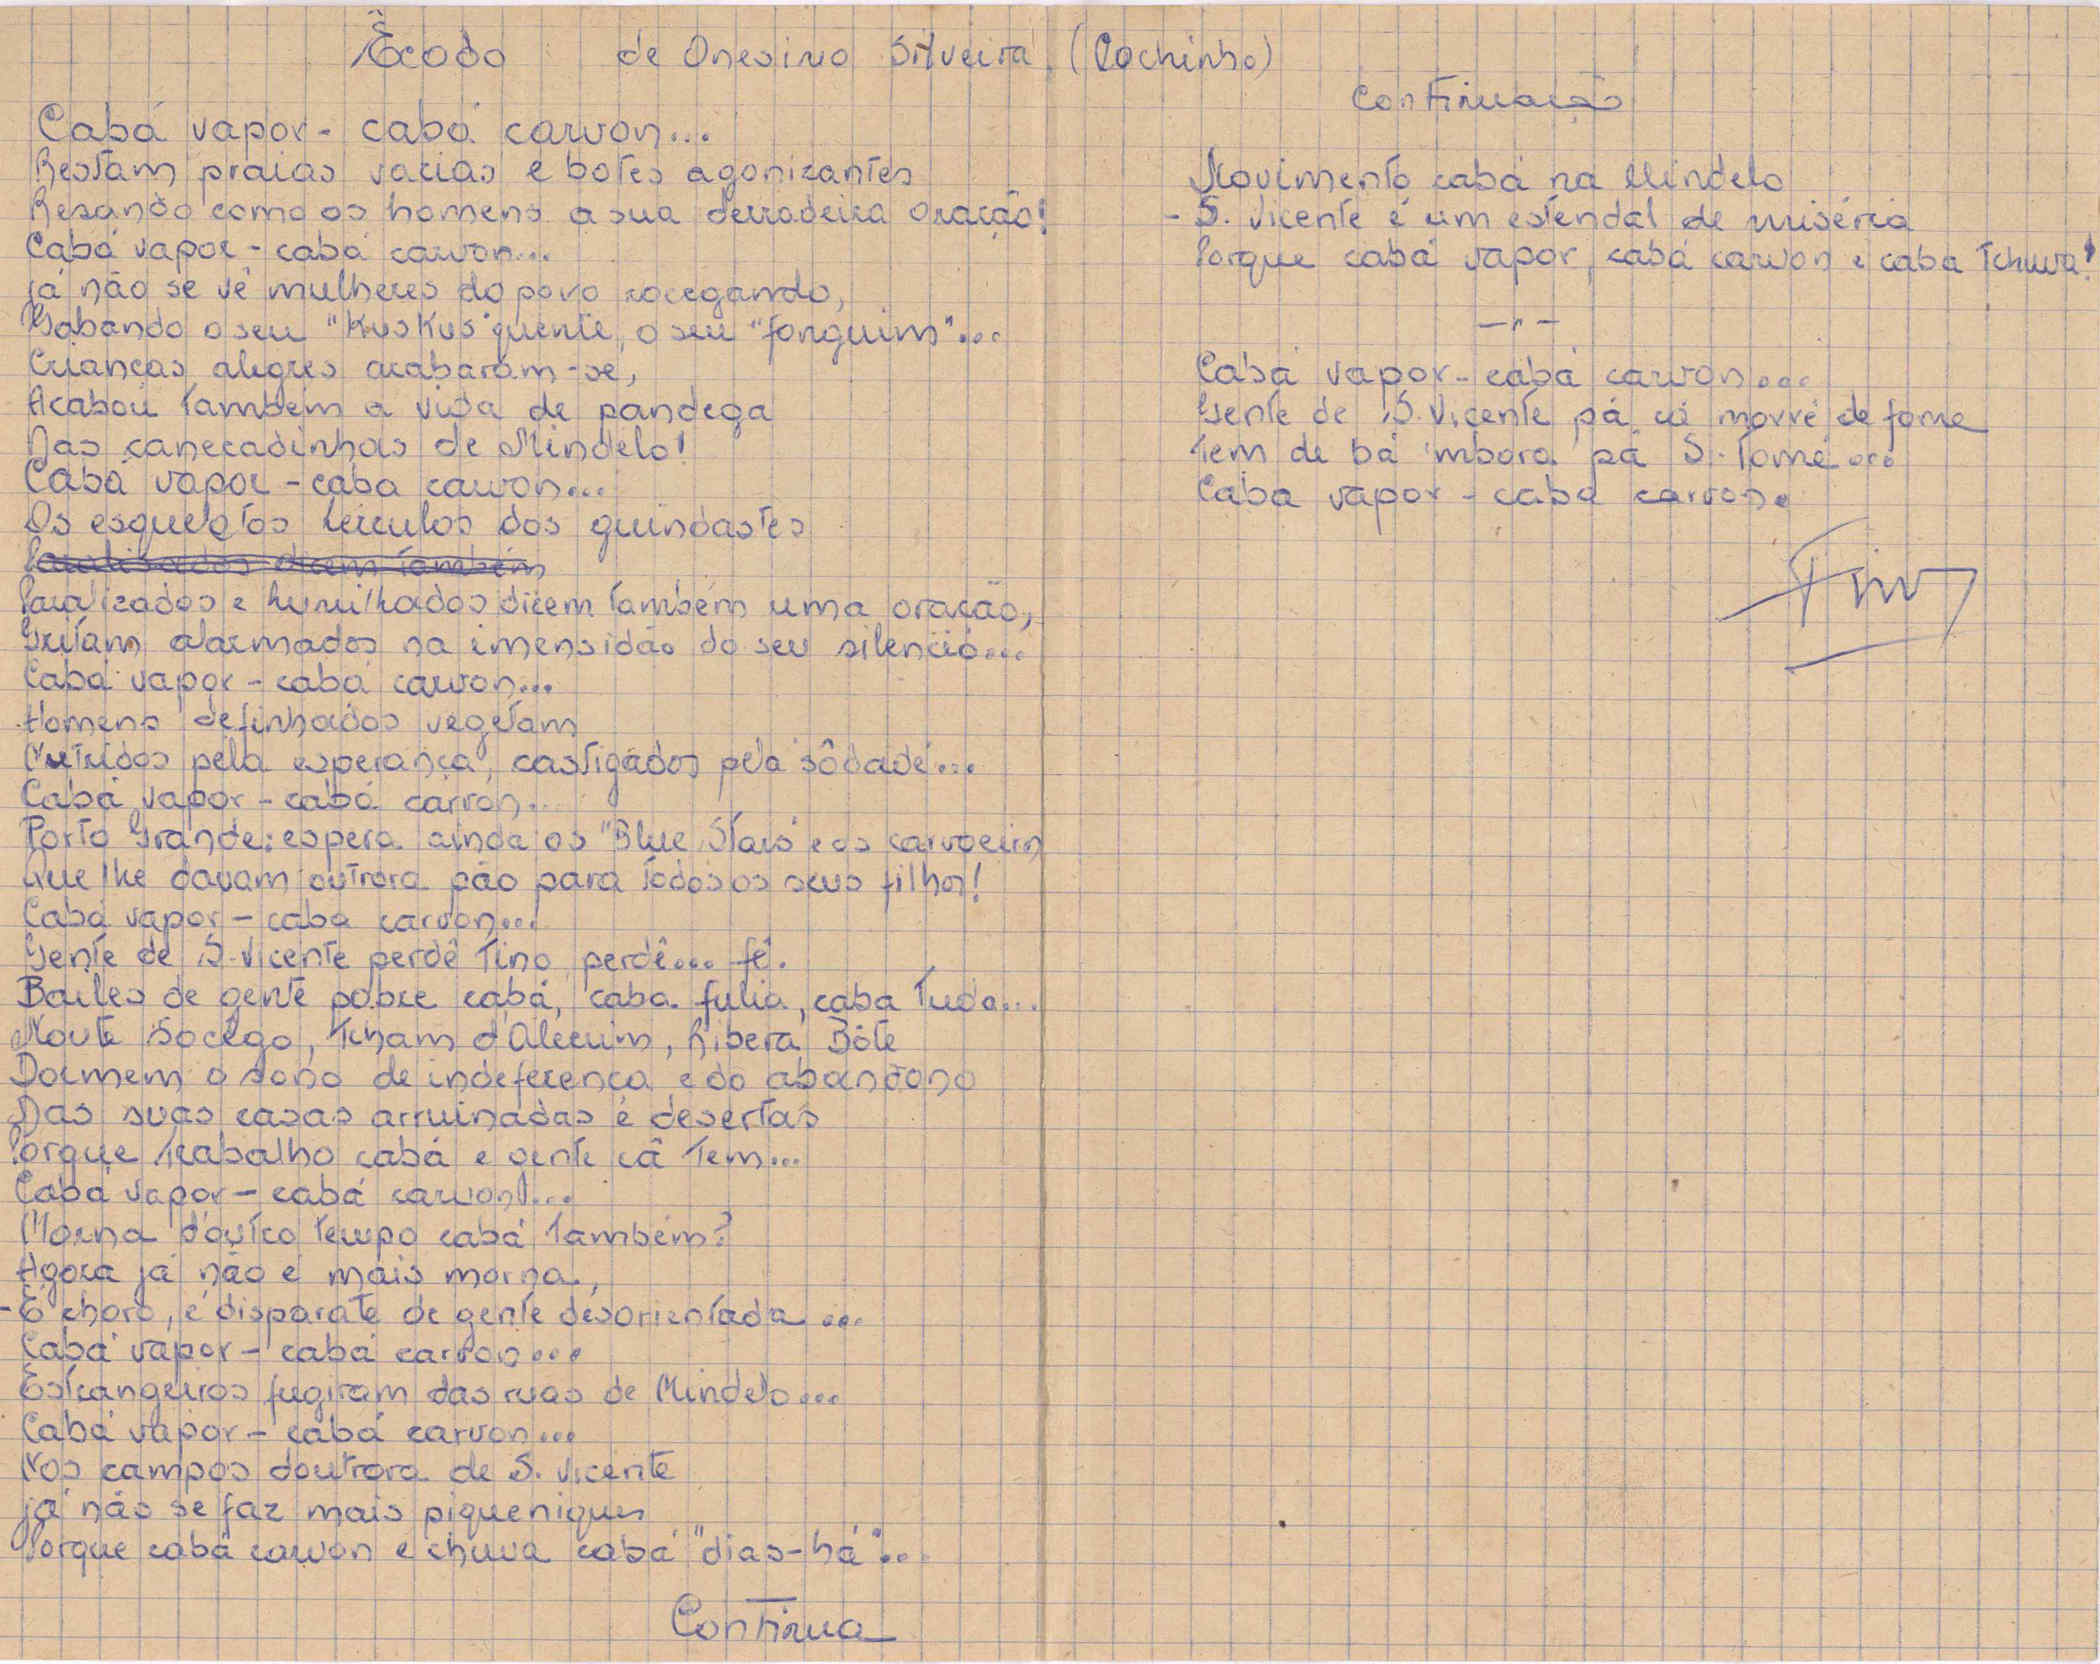 Êxodo de Onesimo Silveira (Cochinho)
Cabá vapor - cabá carvon...
Restam praias vazias e botes agonizantes
Resando como os homens a sua derradeira oração!
Cabá vapor - cabá carvon...
já não se vê mulheres do povo
Gabando o seu "KusKus" quente, o seu "fonguim"...
Crianças alegres acabaram-se,
Acabou também a vida de pandega
Das canecadinhas de Mindelo!
Cabá vapor - cabá carvon...
Os esqueletos hérculos dos guindastes
Paralisados dizem também
Paralizados e humilhados dizem também uma oração,
Gritam alarmados na imensidão do seu silencio...
Cabá vapor - cabá carvon...
Homens definhados vegetam
Nutridos pela esperança, castigados pela sôdade...
Cabá vapor - cabá carvon...
Porto Grande: espera ainda os "Blue Stars" e os carvoeiros
Que lhe davam outrora pão para todos os seus filhos!
Cabá vapor - caba carvon...
Gente de S. Vicente perdê tino perdê... fé.
Bailes de gente pobre cabá, caba fulia, caba tudo...
Monte Socêgo, Tcham d'Alecrim, Ribera Bôte
Dormem o sono de indeferença e do abandono
Das suas casas arruinadas e desertas
Porque trabalho cabá e gente câ tem...
Cabá vapor - cabá carvon!...
Morna d'outro tempo cabá também?
Agora já não é mais morna,
- É choro, é disparate de gente desorientada...
Cabá vapor - cabá carvon...
Estrangeiros fugiram das ruas de Mindelo...
Cabá vapor - cabá carvon...
Nos campos doutrora de S. Vicente
já não se faz mais piqueniques
Porque cabá carvon e chuva cabá "dias-há"...
Continua
Continuação
Movimento cabá na Mindelo
- S. Vicente é um estendal de miséria
Porque cabá vapor, cabá carvon e caba tchuva!
Cabá vapor - cabá carvon...
Gente de S. Vicente pá câ morrê de fome
Tem de bá 'mbora pá S. Tomé...
Caba vapor - caba carvon.
Fim